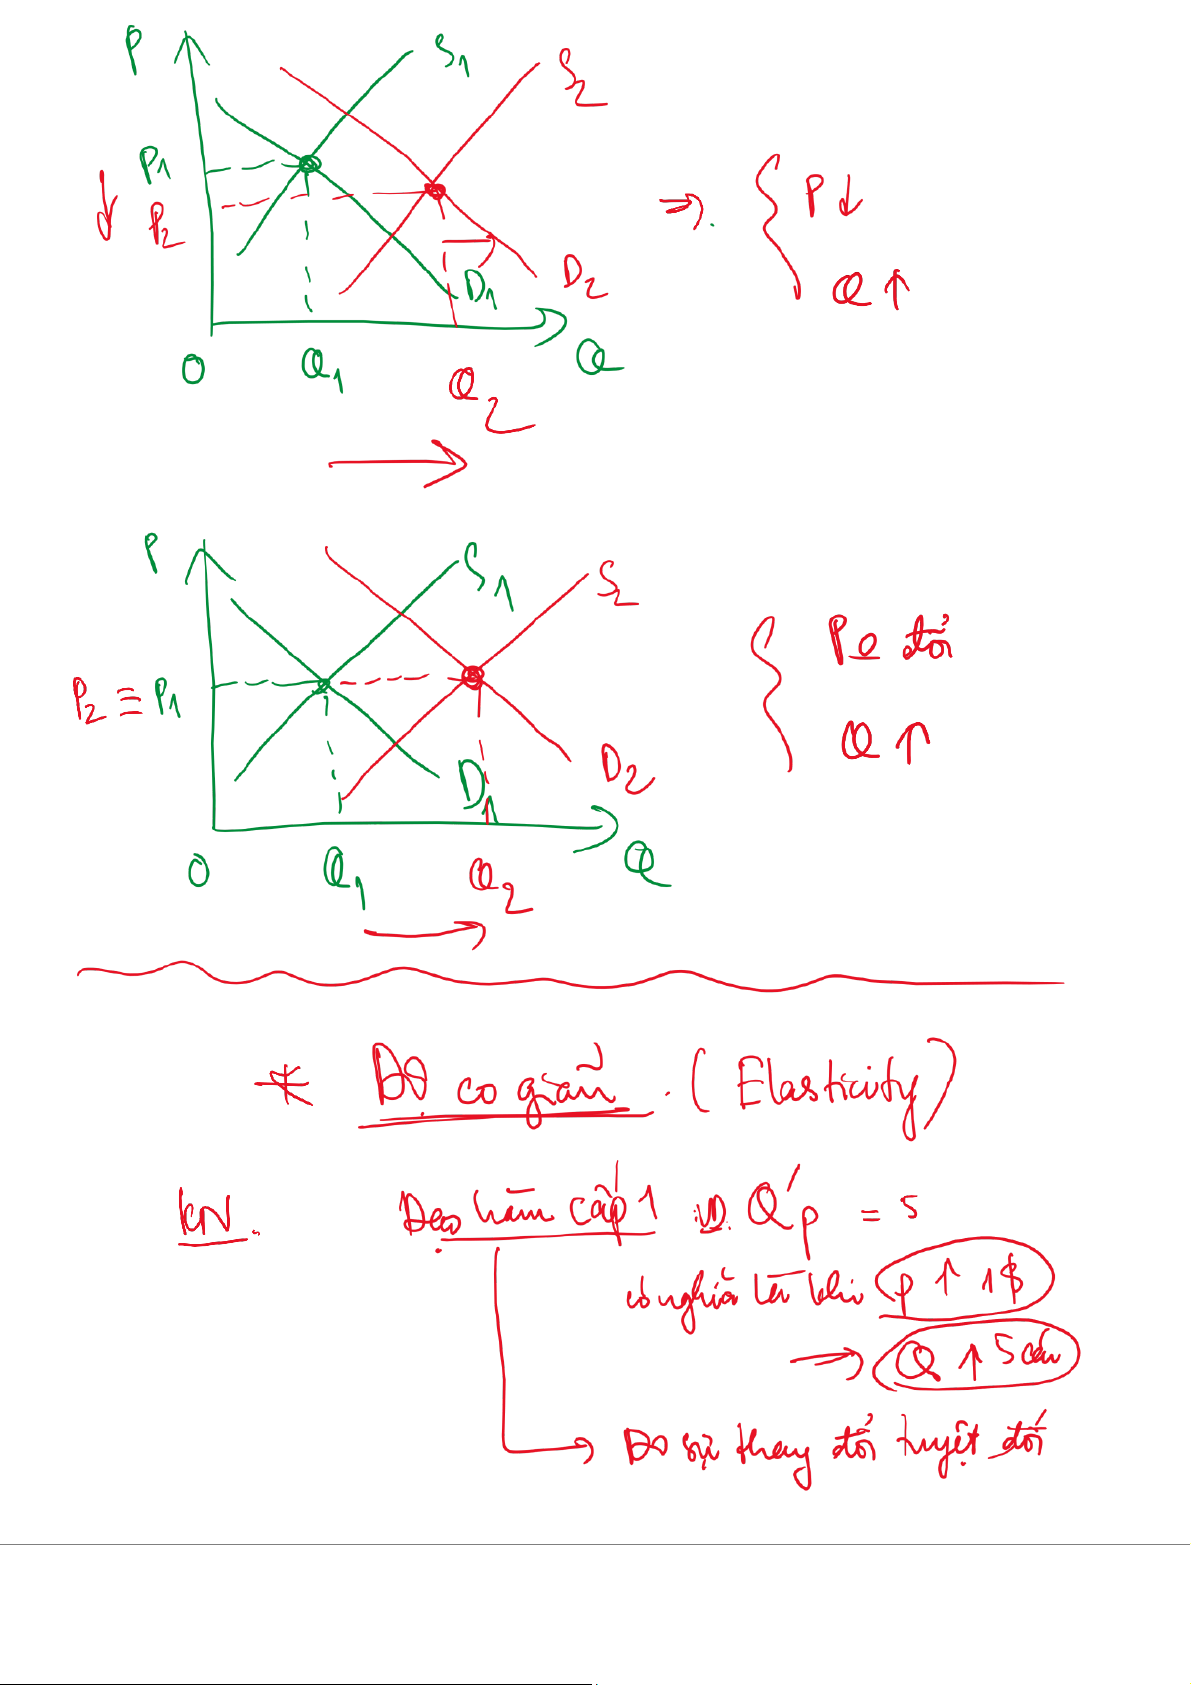 P
S1
S2
P1
P2
D1
D2
O
Q1
Q2
Q
=> { P↓
Q↑
P
S1
S2
P2 ≡ P1
D1
D2
O
Q1
Q2
Q
{ P ko đổi
Q↑
* Độ co giãn. (Elasticity)
KN.
Đạo hàm cấp 1 VD. Q'p = 5
có nghĩa là khi P ↑ 1$
→ Q ↑ 5 cái
→ Đo sự thay đổi tuyệt đối